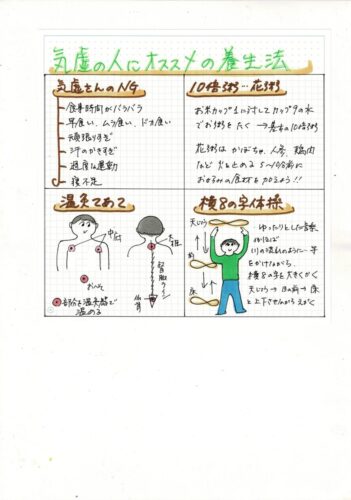 気虚の人にオススメの養生法
気虚さんのNG
食事時間がバラバラ
早食い、ムラ食い、ドカ食い
頑張りすぎ
汗のかきすぎ
過度な運動
寝不足
10倍粥…花粥
お米カップ1に対してカップ9の水
でお粥をたく → 基本の10倍粥
花粥はかぼちゃ、人参、鶏肉
など 火を止める5〜10分前に
お好みの食材を加えよう!!
温灸であて
中府
おへそ
部分を温灸器で
温める
大椎
督脈ライン
仙骨
横8の字体操
天じょう
前
床
ゆったりとした
川の流れのように
をかけながら、
横8の字を大きくかく
天じょう → 目の前 → 床
と上下させながらえがく